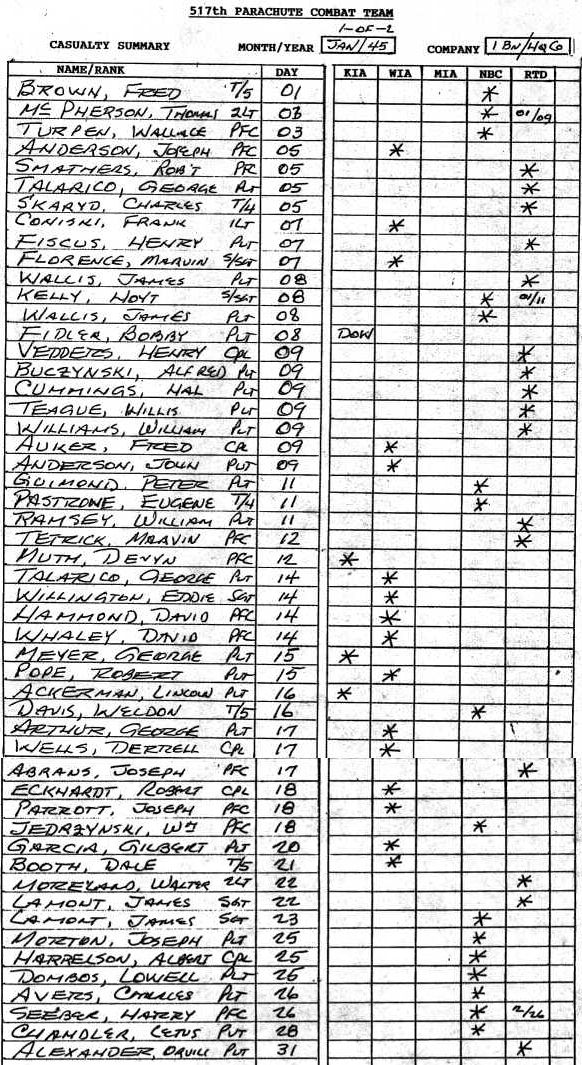 517th PARACHUTE COMBAT TEAM
1-OF-2
CASUALTY SUMMARY MONTH/YEAR JAN/45 COMPANY 1 BN/HQ CO
NAME/RANK DAY KIA WIA MIA NBC RTD
BROWN, FRED T/5 01 *
McPHERSON, THOMAS 2LT 03 * 01/09
TURPEN, WALLACE PFC 03 *
ANDERSON, JOSEPH PFC 05 *
SMATHERS, ROB'T 05 *
TALARICO, GEORGE PVT 05 *
SKARYD, CHARLES T/4 05 *
CONISKI, FRANK 1LT 07 *
FISCUS, HENRY PVT 07 *
FLORENCE, MARVIN S/SGT 07 *
WALLIS, JAMES PVT 08 *
KELLY, HOYT S/SGT 08 * 01/11
WALLIS, JAMES PVT 08 *
FIDLER, BOBBY PVT 08 DOW
VEDDERS, HENRY CPL 09 *
BUCZYNSKI, ALFRED PVT 09 *
CUMMINGS, HAL PVT 09 *
TEAGUE, WILLIS PVT 09 *
WILLIAMS, WILLIAM PVT 09 *
AUKER, FRED CPL 09 *
ANDERSON, JOHN PVT 09 *
GUIMOND, PETER PVT 11 *
PASTRONE, EUGENE T/4 11 *
RAMSEY, WILLIAM PVT 11 *
TETRICK, MARVIN PFC 12 *
MUTH, DEVYN PFC 12 *
TALARICO, GEORGE PVT 14 *
WILLINGTON, EDDIE SGT 14 *
HAMMOND, DAVID PFC 14 *
WHALEY, DAVID PFC 14 *
MEYER, GEORGE PVT 15 *
POPE, ROBERT PVT 15 *
ACKERMAN, LINCOLN PVT 16 *
DAVIS, WELDON T/5 16 *
ARTHUR, GEORGE PVT 17 *
WELLS, DERRELL CPL 17 *
ABRANS, JOSEPH PFC 17 *
ECKHARDT, ROBERT CPL 18 *
PARROTT, JOSEPH PFC 18 *
JEDRZYNSKI, WM PFC 18 *
GARCIA, GILBERT PVT 20 *
BOOTH, DALE T/5 21 *
MORELAND, WALTER 2LT 22 *
LAMONT, JAMES SGT 22 *
LAMONT, JAMES SGT 23 *
MORTON, JOSEPH PVT 25 *
HARRELSON, ALBERT CPL 25 *
DOMBOS, LOWELL PVT 25 *
AVERS, CHARLES PVT 26 *
SEEBER, HARRY PFC 26 * 12/26
CHANDLER, CETUS PVT 28 *
ALEXANDER, ORVILL PVT 31 *